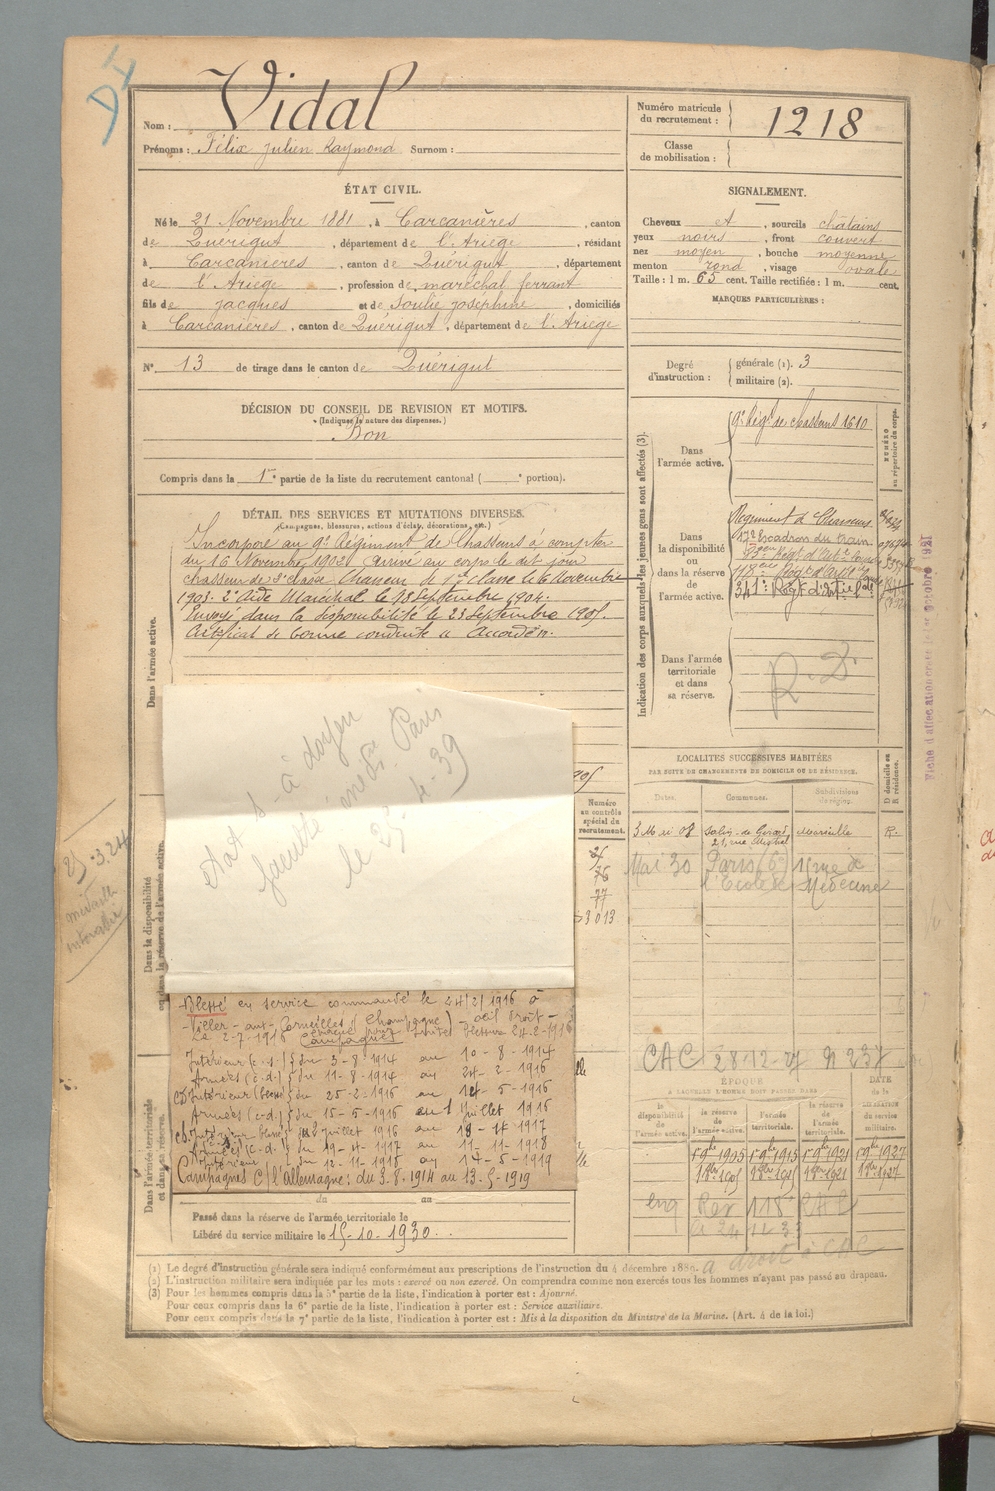 Nom : Vidal
Prénoms : Félix Julien Raymond Surnom :
Numéro matricule du recrutement : 1218
Classe de mobilisation :
ÉTAT CIVIL.
Né le 21 Novembre 1881, à Carcanières, canton
de Quérigut, département de l'Ariège, résidant
à Carcanieres, canton de Quérigut, département
de l'Ariege, profession de maréchal ferrant
fils de jacques et de Soulié josephine, domiciliés
à Carcanières, canton de Quérigut, département de l'Ariege
N° 13 de tirage dans le canton de Quérigut
DÉCISION DU CONSEIL DE REVISION ET MOTIFS.
(Indiquer la nature des dispenses.)
Bon
Compris dans la 1re partie de la liste du recrutement cantonal ( e portion).
SIGNALEMENT.
Cheveux et, sourcils châtains
yeux noirs, front couvert
nez moyen, bouche moyenne
menton rond, visage ovale
Taille : 1 m. 65 cent. Taille rectifiée : 1 m. cent.
MARQUES PARTICULIÈRES :
Degré d'instruction : générale (1). 3
militaire (2).
DÉTAIL DES SERVICES ET MUTATIONS DIVERSES.
(Campagnes, blessures, actions d'éclat, décorations, etc.)
Dans l'armée active.
Incorporé au 9e Régiment de Chasseurs à compter
du 16 Novembre 1902 Arrivé au corps le dit jour
chasseur de 2e classe Chasseur de 1re classe le 6 Novembre
1903. 2e Aide Maréchal le 18 Septembre 1904.
Envoyé dans la disponibilité le 23 Septembre 1905.
Certificat de bonne conduite « Accordé ».
Indication des corps auxquels les jeunes gens sont affectés (3).
NUMÉRO au répertoire du corps.
Dans l'armée active.
9e Régt de chasseurs 1610
Dans la disponibilité ou dans la réserve de l'armée active.
Régiment de Chasseurs
17e Escadron du train
341e Régt d'artie
Dans l'armée territoriale et dans sa réserve.
R. D
Fiche d'affectation
octobre 1921
état s - à doyen
faculté médne Paris
le 25 - 4 - 39
25.3.24
médaille
Dans la disponibilité
ou dans la réserve de l'armée active.
Numéro au contrôle spécial du recrutement.
76
77
3013
LOCALITES SUCCESSIVES HABITÉES
PAR SUITE DE CHANGEMENTS DE DOMICILE OU DE RÉSIDENCE.
Dates. Communes. Subdivisions de région. D domicile ou R résidence.
3 Mai 08 Salin-de Giraud 21, rue Mistral Marseille R.
Mai 30 Paris (6e) 15 rue de
l'Ecole de Médecine
Blessé en service commandé le 24/2/1916 à
Viller-aux-Corneilles (Champagne) oeil droit -
Campagnes
Intérieur (c.s.) du 3-8-1914 au 10-8-1914
Armées (c.d.) du 11-8-1914 au 24-2-1916
Intérieur (blessé) du 25-2-1916 au 14-5-1916
Armées (c.d.) du 15-5-1916 au 1 juillet 1916
Intérieur blessé du 2 juillet 1916 au 18-4-1917
Armées (c.d.) du 19-4-1917 au 11-11-1918
Intérieur du 12-11-1918 au 14-5-1919
Campagnes c/ l'Allemagne : du 3-8-1914 au 13-5-1919
CAC 28-12-27 N 237
Dans l'armée territoriale
et dans sa réserve.
du au
Passé dans la réserve de l'armée territoriale le
Libéré du service militaire le 15-10-1930.
ÉPOQUE
A LAQUELLE L'HOMME DOIT PASSER DANS
la disponibilité de l'armée active. la réserve de l'armée active. l'armée territoriale. la réserve de l'armée territoriale.
DATE de la LIBÉRATION du service militaire.
1er 9bre 1905 1er 9bre 1915 1er 9bre 1921 1er 9bre 1927
a droit à CAC
(1) Le degré d'instruction générale sera indiqué conformément aux prescriptions de l'instruction du 4 décembre 1889.
(2) L'instruction militaire sera indiquée par les mots : exercé ou non exercé. On comprendra comme non exercés tous les hommes n'ayant pas passé au drapeau.
(3) Pour les hommes compris dans la 5e partie de la liste, l'indication à porter est : Ajourné.
Pour ceux compris dans la 6e partie de la liste, l'indication à porter est : Service auxiliaire.
Pour ceux compris dans la 7e partie de la liste, l'indication à porter est : Mis à la disposition du Ministre de la Marine. (Art. 4 de la loi.)